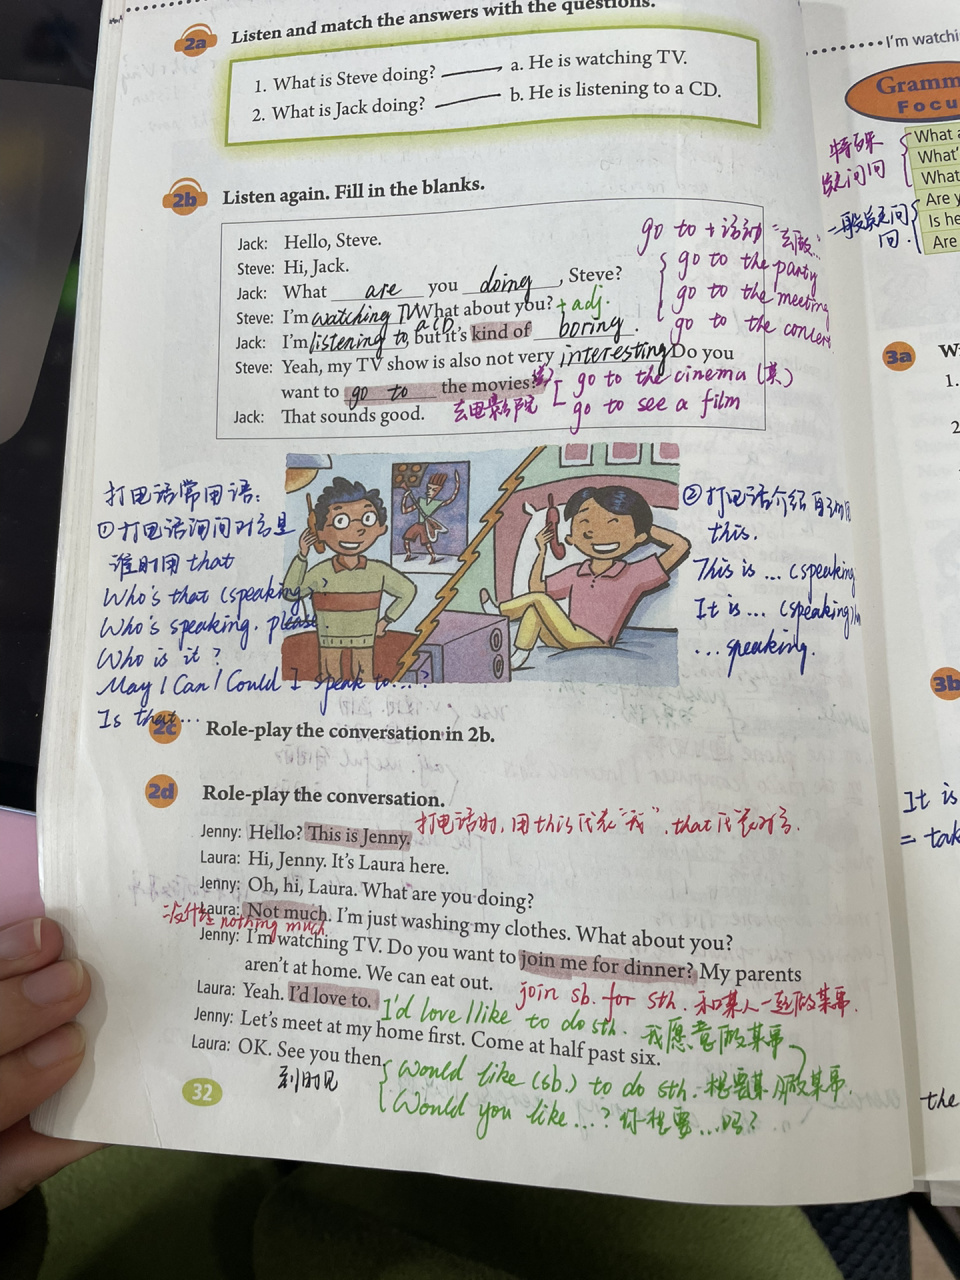 2a Listen and match the answers with the questions.
1. What is Steve doing? a. He is watching TV.
2. What is Jack doing? b. He is listening to a CD.
2b Listen again. Fill in the blanks.
Jack: Hello, Steve.
Steve: Hi, Jack.
Jack: What are you doing, Steve?
Steve: I'm watching TV. What about you? + adj.
Jack: I'm listening to a CD, but it's kind of boring.
Steve: Yeah, my TV show is also not very interesting Do you
want to go to the movies?
Jack: That sounds good.
go to + 活动 "去做…"
go to the party
go to the meeting
go to the concert
去电影院
go to the cinema (英)
go to see a film
打电话常用语:
① 打电话询问对方是
谁时用 that
Who's that (speaking)?
Who's speaking, please
Who is it?
May / Can / Could I speak to...?
Is that...
② 打电话介绍自己用
this.
This is ... (speaking
It is ... (speaking)
... speaking.
2c Role-play the conversation in 2b.
2d Role-play the conversation.
Jenny: Hello? This is Jenny.
打电话时,用this代表"我",that代表对方.
Laura: Hi, Jenny. It's Laura here.
Jenny: Oh, hi, Laura. What are you doing?
Laura: Not much. I'm just washing my clothes. What about you?
没什么 nothing much
Jenny: I'm watching TV. Do you want to join me for dinner? My parents
aren't at home. We can eat out.
join sb. for sth. 和某人一起做某事.
Laura: Yeah. I'd love to.
I'd love / like to do sth. 我愿意做某事
Jenny: Let's meet at my home first. Come at half past six.
Laura: OK. See you then.
到时见
would like (sb.) to do sth. 想要某人做某事
Would you like...? 你想要...吗?
32
I'm watchi
Gramm
Focu
特殊
疑问句
What a
What'
What
一般疑问
句.
Are y
Is he
Are
3a W
1.
2
3b
It is
= tak
the